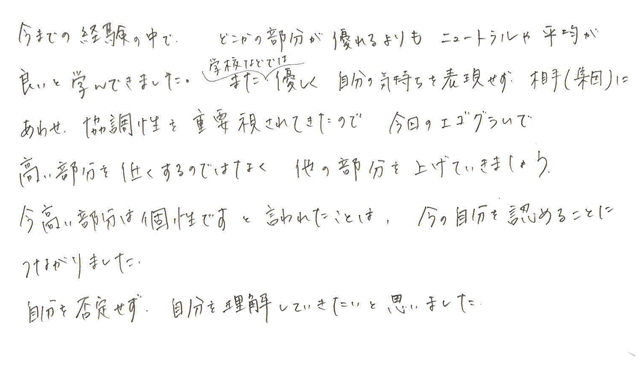 今までの経験の中で、どこかの部分が優れるよりもニュートラルや平均が
良いと学んできました。学校などではまた優しく自分の気持ちを表現せず、相手(集団)に
あわせ、協調性を重要視されてきたので今回のエゴグラムで
高い部分を低くするのではなく他の部分を上げていきましょう、
今高い部分は個性ですと言われたことは、今の自分を認めることに
つながりました。
自分を否定せず、自分を理解していきたいと思いました。